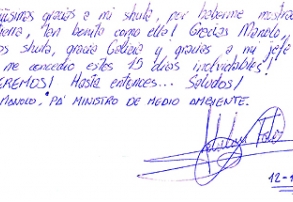 gracias a mi shula, por haberme mostra
tierra, tan bonita como ella! Gracias Manolo,
os shula, gracias Galicia y gracias, a mi jefe
me concedió estos 15 días inolvidables!
EREMOS! Hasta entonces... Saludos!
MANOLO, PA' MINISTRO DE MEDIO AMBIENTE.
12-1